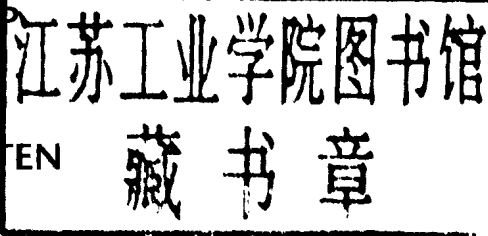 江苏工业学院图书馆
TEN 藏书章